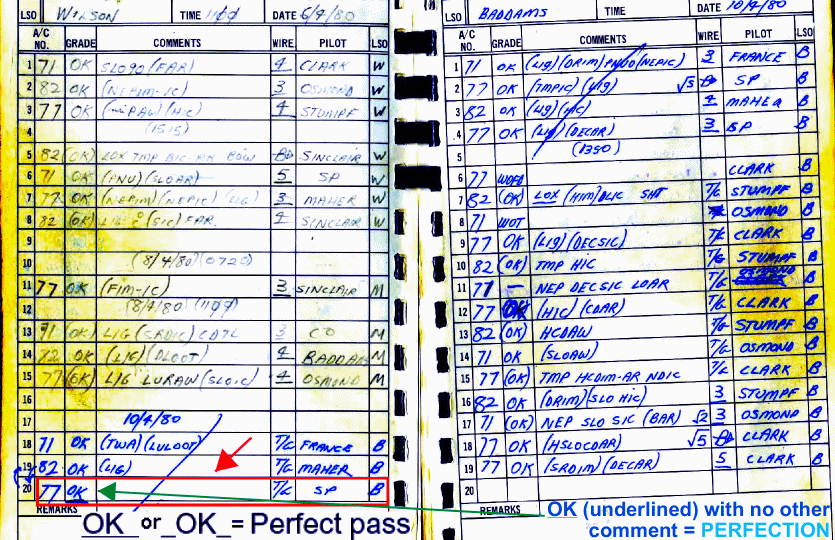 LSO WILSON TIME 1100 DATE 6/4/80
A/C NO. GRADE COMMENTS WIRE PILOT LSO
1 71 OK SLO90 (FAR) 4 CLARK W
2 82 OK (NEPIM-IC) 3 OSMOND W
3 77 OK (HIC) 4 STUMPF W
4 (1515)
5 82 (OK) LOX TMP BIC-AR BOW SINCLAIR W
6 71 OK (PNU) (SLOAR) 5 SP W
7 77 OK (NEPIM) (NEPIC) (LIG) 3 MAHER W
8 82 (OK) LIG (SIC) FAR. 4 SINCLAIR W
9
10 (8/4/80) (0720)
11 77 OK (FIM-IC) 3 SINCLAIR M
12 (8/4/80) (1107)
13 71 (OK) LIG (SRDIC) CDTL 3 CO M
14 72 OK (LIG) (DLOOT) 4 BADDAMS M
15 77 (OK) LIG LURAW (SLOIC) 4 OSMOND M
16
17 10/4/80
18 71 OK (TWA) (LULOOT) T/G FRANCE B
19 82 OK (LIG) T/G MAHER B
20 77 OK T/G SP B
REMARKS
OK or _OK_ = Perfect pass
LSO BADDAMS TIME DATE 10/4/80
A/C NO. GRADE COMMENTS WIRE PILOT LSO
1 71 OK (LIG) (DRIM) (NEPIC) 3 FRANCE B
2 77 OK (TMPIC) (LIG) √5 SP B
3 82 OK (LIG) (HIC) 4 MAHER B
4 77 OK (LIG) (DECAR) 3 SP B
5 (1350)
6 77 WOFD CLARK B
7 82 (OK) LOX (HIM) DLIC SHT T/G STUMPF B
8 71 WOT OSMOND B
9 77 OK (LIG) (DECSIC) T/G CLARK B
10 82 (OK) TMP HIC T/G STUMPF B
11 71 — NEP DECSIC LOAR T/G B
12 77 OK (HIC) (CDAR) T/G CLARK B
13 82 (OK) HCDAW T/G STUMPF B
14 71 OK (SLOAW) T/G OSMOND B
15 77 (OK) TMP HCDIM-AR NDIC T/G CLARK B
16 82 OK (DRIM) (SLO HIC) 3 STUMPF B
17 71 (OK) NEP SLO SIC (BAR) √2 3 OSMOND B
18 77 OK (HSLOCDAR) √5 CLARK B
19 77 OK (SRDIM) (DECAR) 5 CLARK B
20
REMARKS
OK (underlined) with no other
comment = PERFECTION